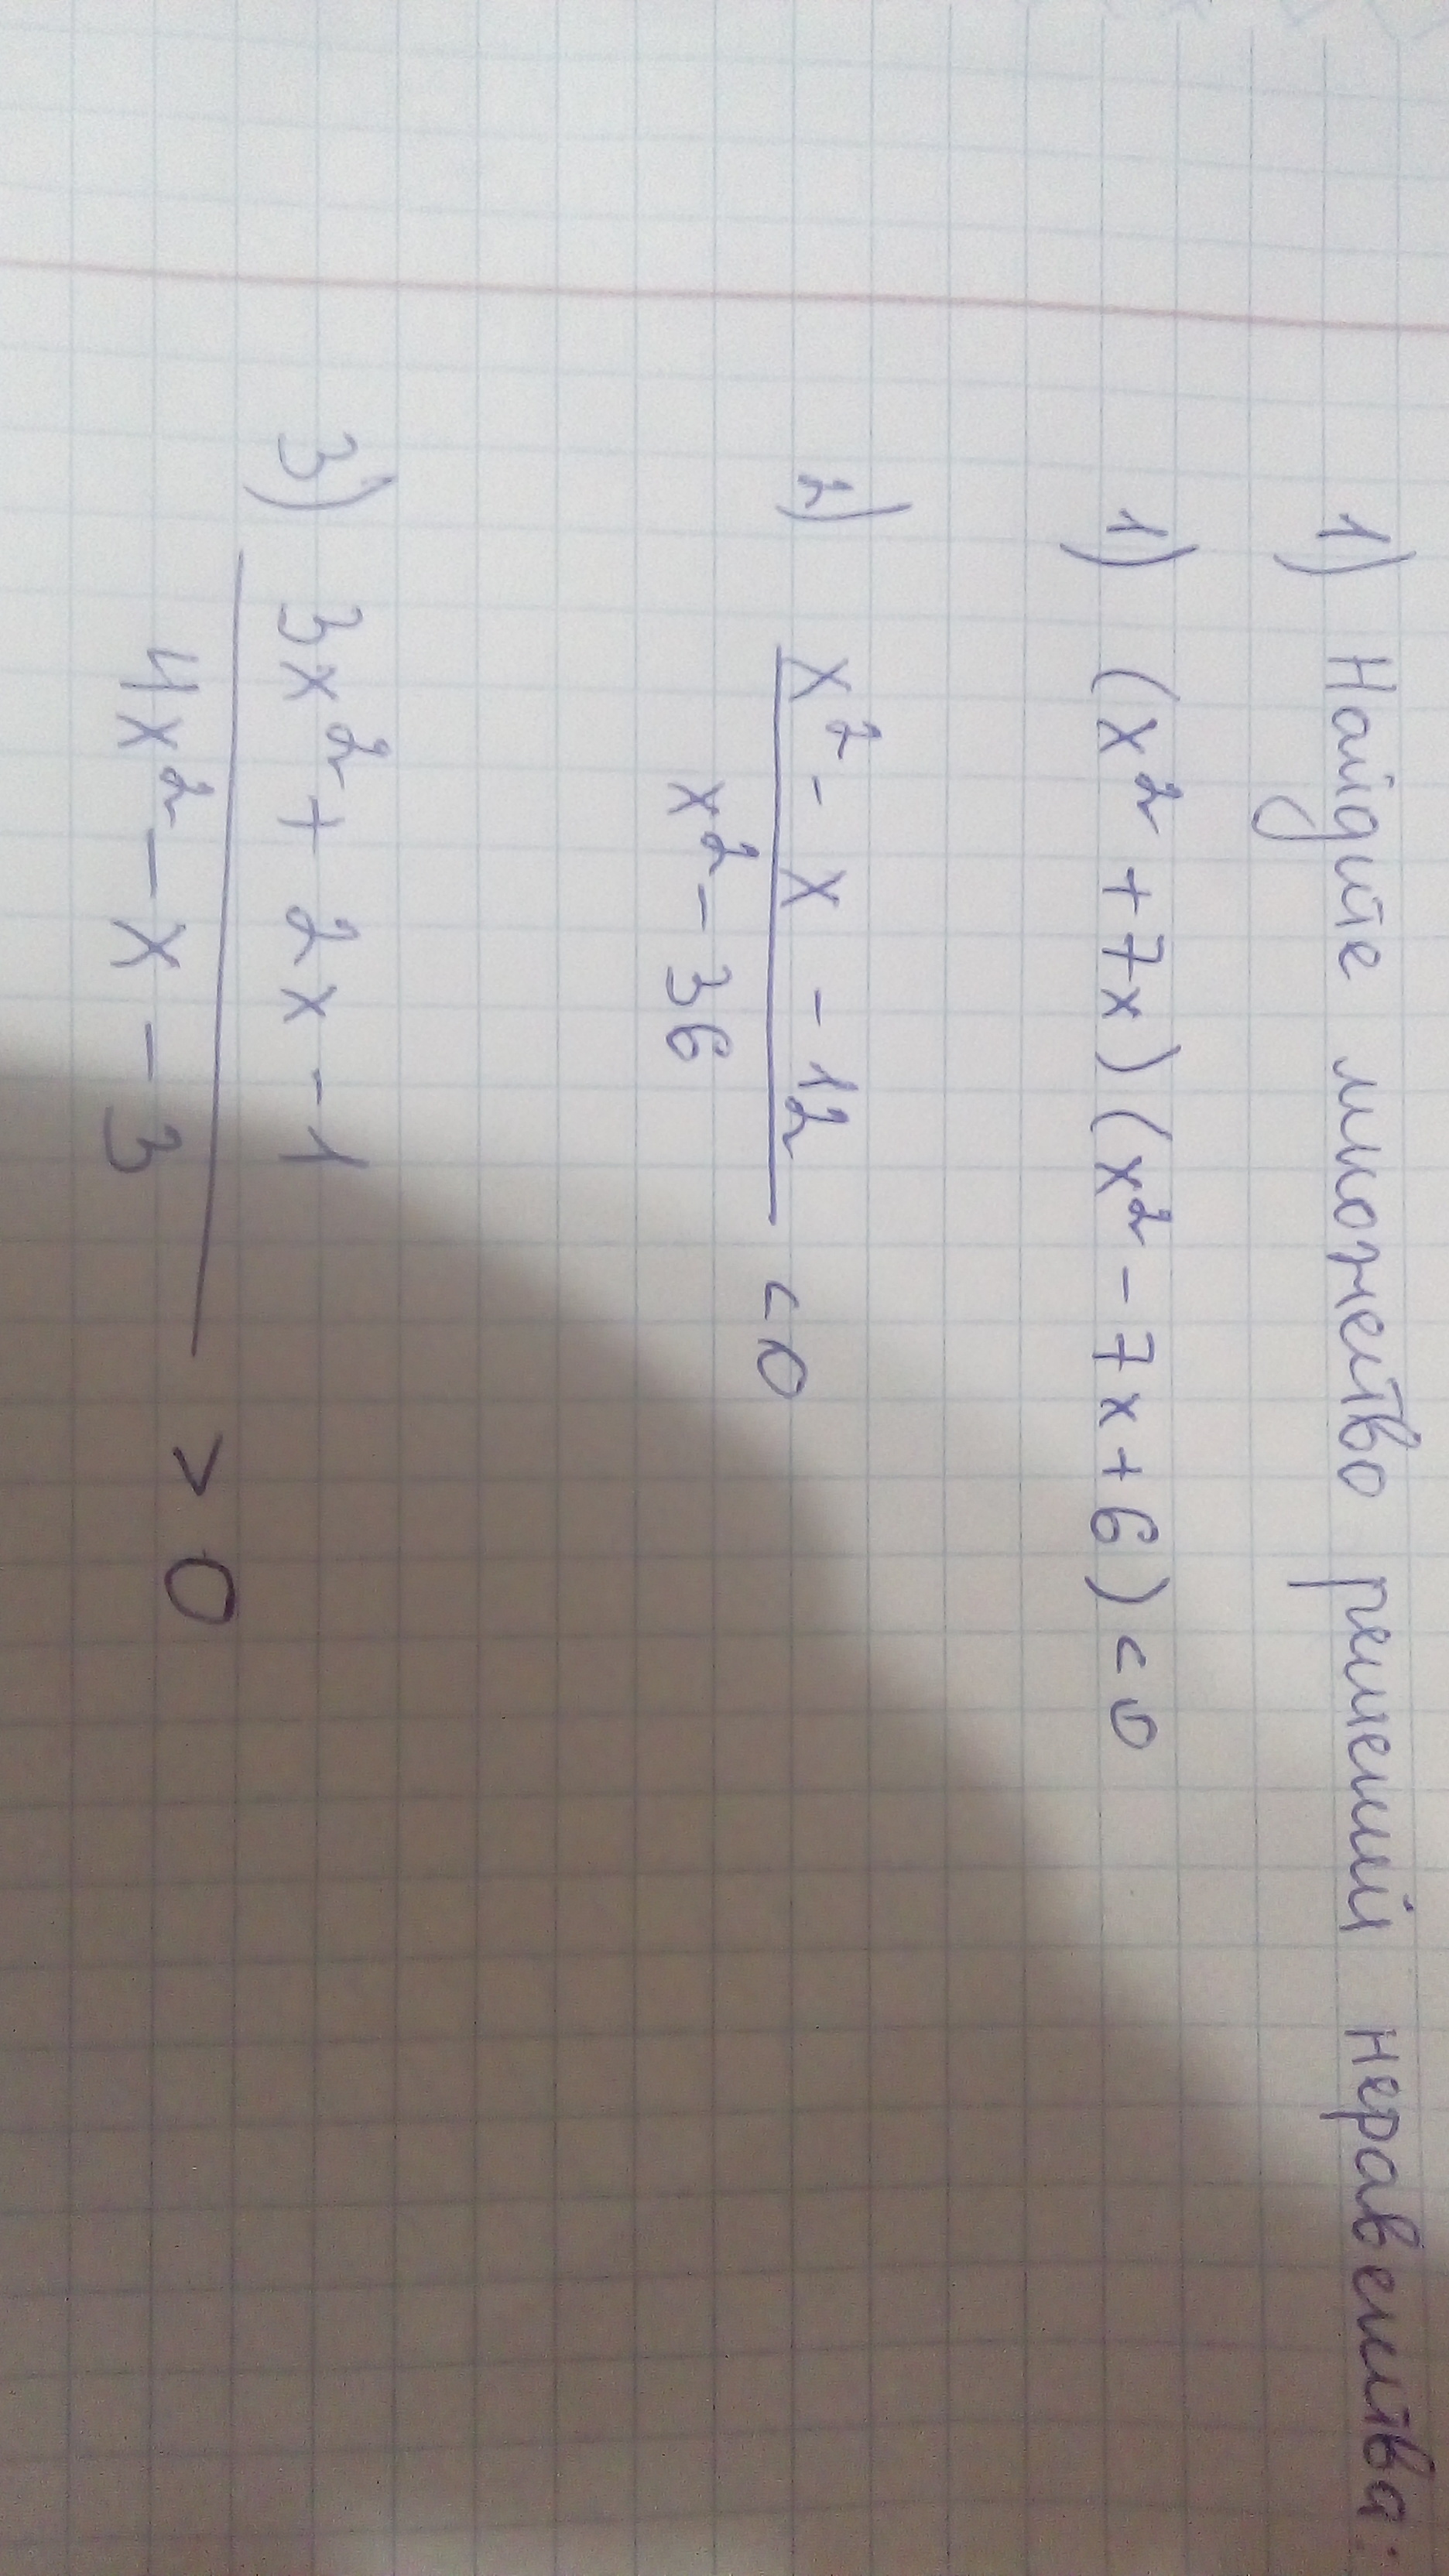 1) Найдите множество решений неравенства:
1) (x² + 7x)(x² - 7x + 6) < 0
2) x² - x - 12
x² - 36
< 0
3) 3x² + 2x - 1
4x² - x - 3
> 0